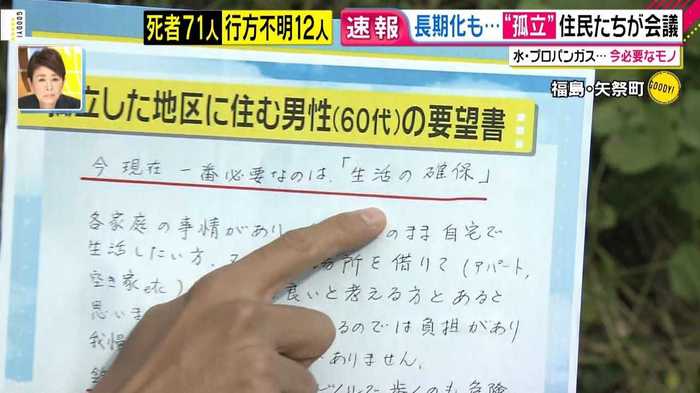 死者71人 行方不明12人 速報 長期化も…“孤立”住民たちが会議
水・プロパンガス…今必要なモノ
福島・矢祭町 GOODY!
立した地区に住む男性(60代)の要望書
今現在 一番必要なのは、「生活の確保」
各家庭の事情があり のまま自宅で
生活したい方、 場所を借りて(アパート,
空き家etc) 良いと考える方とあると
思いま るのでは負担があり
我慢 ありません。
歩くのも危険